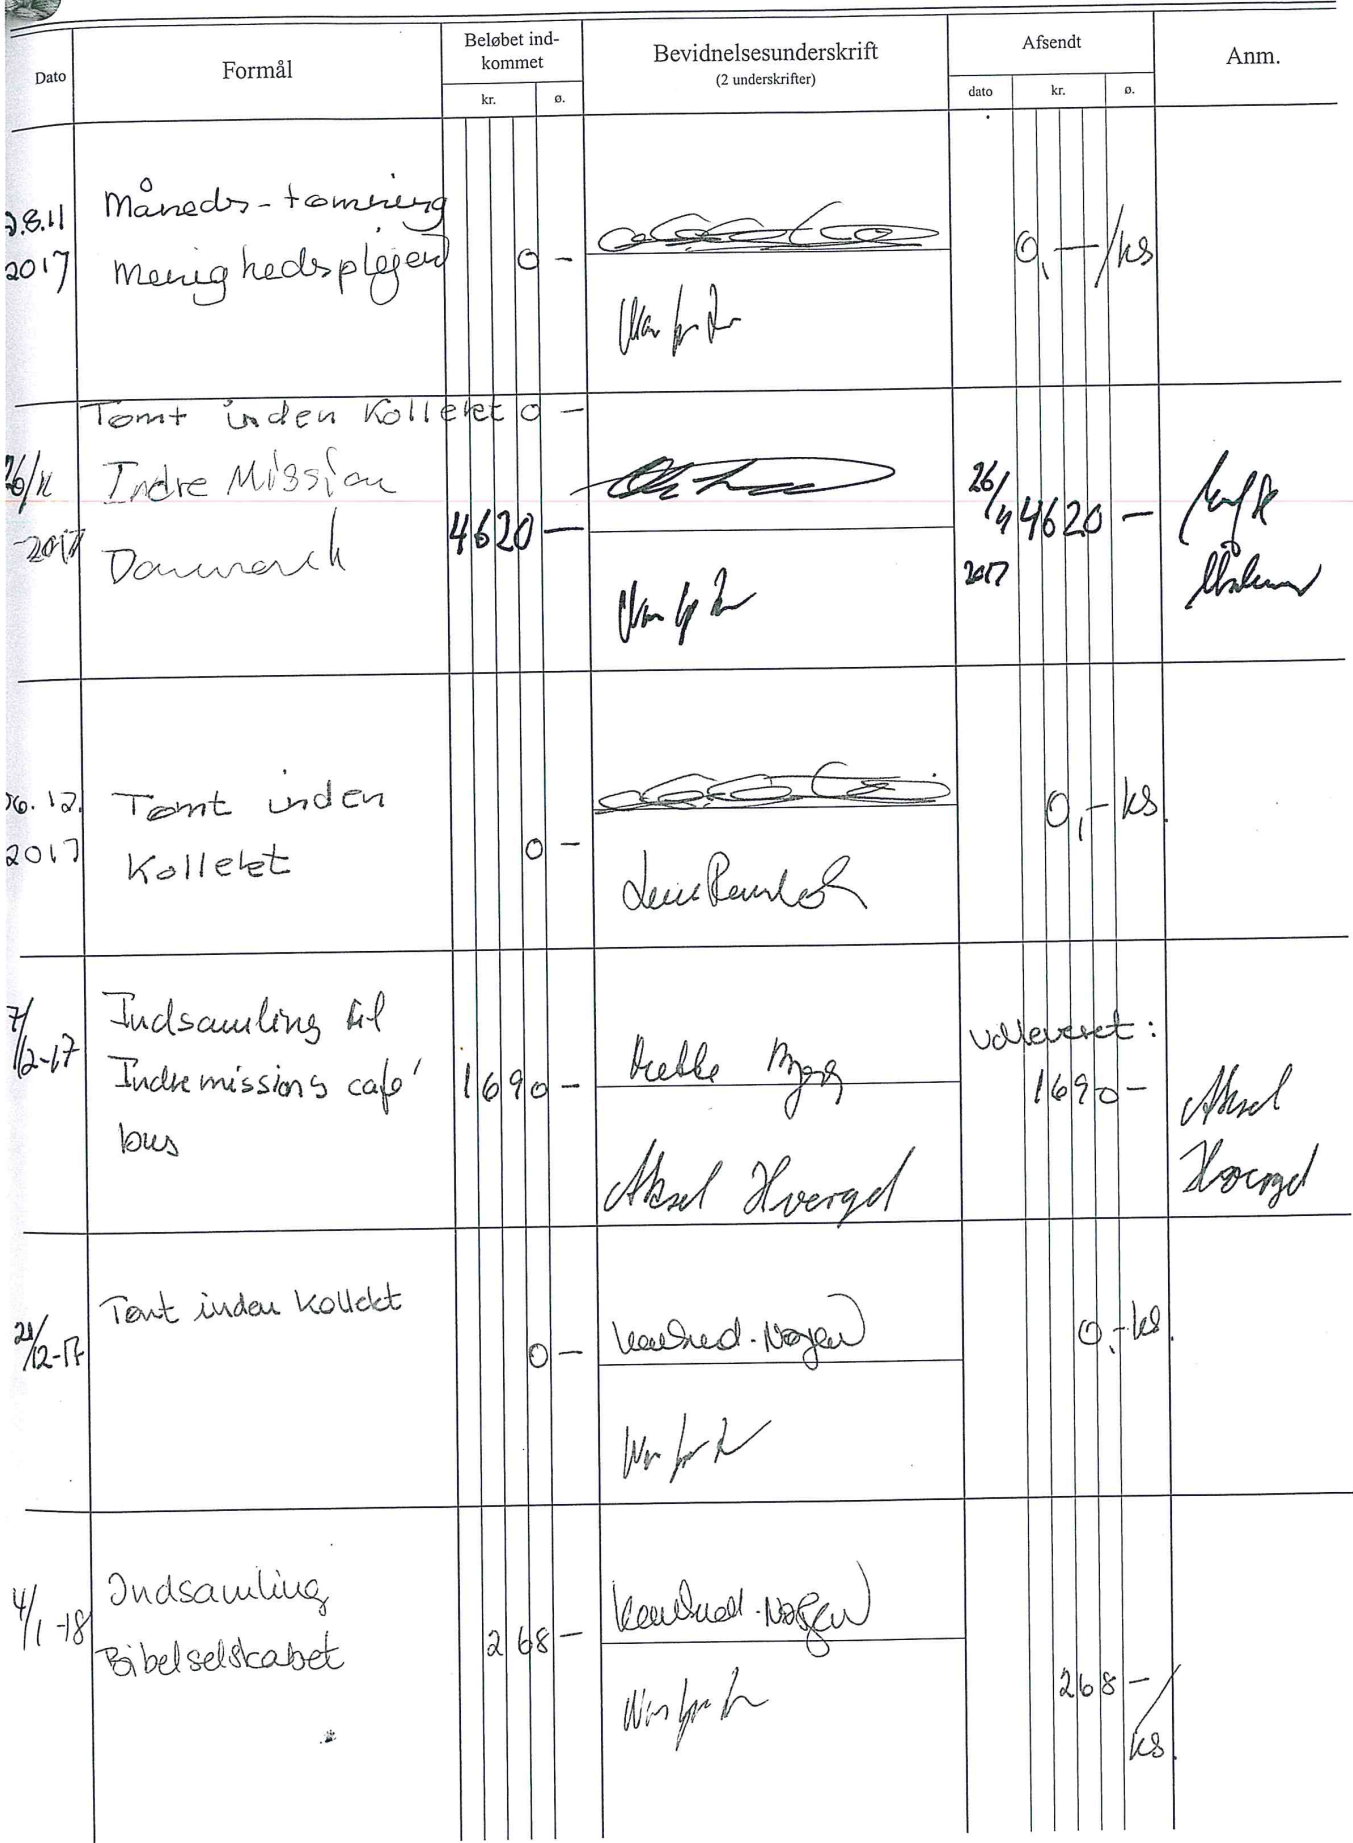 Dato
Formål
Beløbet ind-
kommet
kr. ø.
Bevidnelsesunderskrift
(2 underskrifter)
Afsendt
dato kr. ø.
Anm.
8.11
2017
Måneds-tømning
Menighedsplejen
0 -
0,-/ks
Tømt inden Kollekt 0 -
26/11
2017
Indre Mission
Danmark
4620 -
26/11 4620 -
2017
06.12.
2017
Tømt inden
Kollekt
0 -
0,- ks.
7/12-17
Indsamling til
Indremissions café
bus
1690 -
Aksel Hvergel
udleveret:
1690 -
Aksel
Hvergel
21/12-17
Tømt inden Kollekt
0 -
0,- ks.
4/1-18
Indsamling
Bibelselskabet
268 -
268 -/
ks.